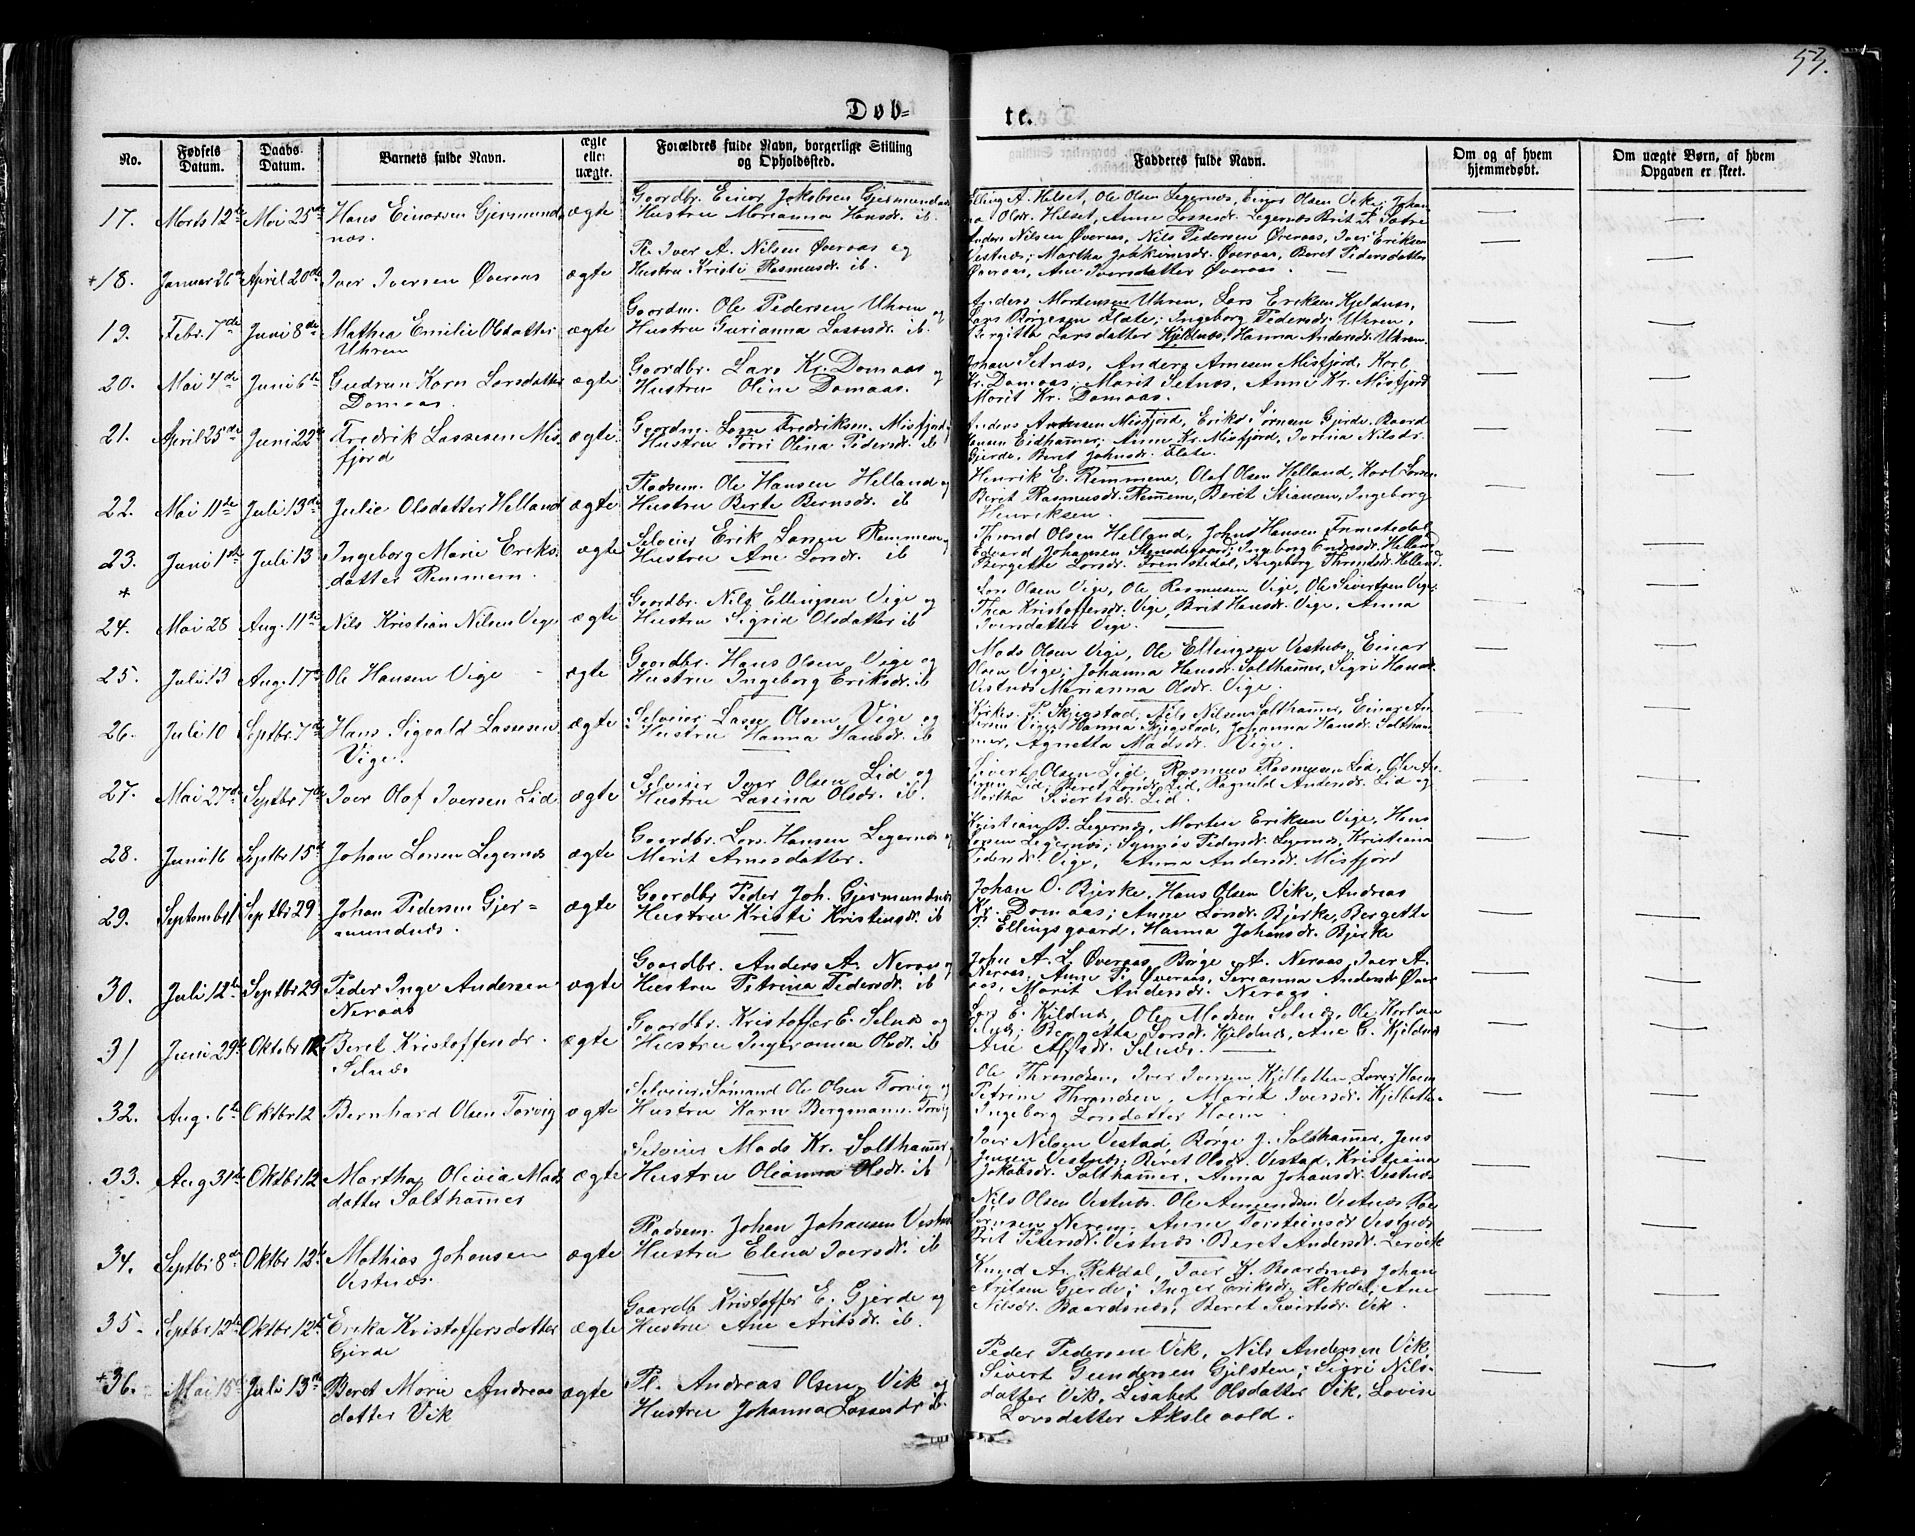 53.
Døb-
te.
No.
Fødsels Datum.
Daabs- Datum.
Barnets fulde Navn.
ægte eller uægte.
Forældres fulde Navn, borgerlige Stilling og Opholdssted.
Fadderes fulde Navn.
Om og af hvem hjemmedøbt.
Om uægte Børn, af hvem Opgaven er skeet.
17. Marts 12te Mai 25de Hans Einarsen Gjermund- ægte Gaardbr. Einar Jakobsen Gjermundnæs
næs. Hustru Marianna Hansdr. ib.
Elling A. Helset, Ole Olsen Legernæs, Einar Olsen Vike, Johan
na Oldr. Helset, Anne Lassesdr. Legernæs
+18. Januar 26de April 20de Iver Iversen Øveraas ægte Pl. Iver A. Nilsen Øveraas og
Hustru Kristi Rasmusdr. ib.
Anders Nilsen Øveraas, Nils Pedersen Øveraas, Iver Eriksen
Vestnæs; Martha Joakimsdr. Øveraas, Beret Pedersdatter
Øveraas, Ane Iversdatter Øveraas.
19. Febr. 7de Juni 8de Mathea Emilie Olsdatter ægte Gaardm. Ole Pedersen Uhren og
Uhrem Hustru Gurianna Lassesdr. ib.
Anders Mortensen Uhren, Lars Eriksen Kjeldnæs,
Lars Børgesen Flate; Ingeborg Pedersdr. Uhren,
Bergitta Larsdatter Kjeldnæs, Hanna Andersdr. Uhrem.
20. Mai 4de Juni 6te Gudrun Karn Larsdatter ægte Gaardbr. Lars Kr. Domaas og
Domaas. Hustru Oline Domaas.
Johan Setnæs, Anders Arnesen Misfjord, Karl
Kr. Domaas; Marit Setnæs, Anne Kr. Misfjord
Marit Kr. Domaas.
21. April 25de Juni 22de Fredrik Lassesen Mis- ægte Gaardm. Lasse Fredriksen Misfjord og
fjord Hustru Olina Pedersdr. ib
Anders Andersen Misfjord, Erik Sørnsen Gjerde, Baard
Hansen Eidhammer; Anne Kr. Misfjord, Nilsdr.
Gjerde, Beret Johnsdr. Flate.
22. Mai 11te Juli 13de Julie Olsdatter Helland ægte Pladsm. Ole Hansen Helland og
Hustru Berte Bernsdr. ib
Henrik E. Remmem, Olaf Olsen Helland, Karl Larsen
Beret Rasmusdr. Remem, Beret Stiansen, Ingeborg
Henriksen.
23. Juni 1ste Juli 13 Ingeborg Marie Eriks- ægte Selveier Erik Larsen Remmem og
datter Remmem. Hustru Ane Larsdr. ib
Thrond Olsen Helland, Johns Hansen Fremstedal
Edvard Johansen Stensdegaard; Ingeborg Endresdr. Helland
Bergette Larsdr. Fremstedal, Ingeborg Throndsdr. Helland.
+
24. Mai 28 Aug. 11te Nils Kristian Nilsen Vige ægte Gaardbr. Nils Ellingsen Vige og
Hustru Sigrid Olsdatter ib
Lars Olsen Vige, Ole Rasmusen Vige, Ole Sivertsen Vige;
Thea Kristoffersdr. Vige, Brit Hansdr. Vige, Anna
Iversdatter Vige.
25. Juli 13 Aug. 17de Ole Hansen Vige ægte Gaardbr. Hans Olsen Vige og
Hustru Ingeborg Eriksdr. ib
Mads Olsen Vige, Ole Ellingsen Vestnæs, Einar
Olsen Vige; Johanna Hansdr. Salthamer, Sigri Hansdr.
Vestnæs Marianna Olsdr. Vige.
26. Juli 10 Septbr. 7de Hans Sigvald Lassesen ægte Selveier Lasse Olsen Vige og
Vige. Hustru Hanna Hansdr. ib
Kirkes. P. Skjegstad, Nils Nilsen Salthamer, Einar An-
dersen Vige; Hanna Skjegstad, Johanna Hansdr. Saltham-
mer, Agnetta Madsdr. Vige.
27. Mai 27de Septbr 7de Iver Olaf Iversen Lid ægte Selveier Iver Olsen Lid og
Hustru Lasina Olsdr. ib.
Sivert Olsen Lid, Rasmus Rasmusen Lid, Ole
Lid; Beret Larsdr. Lid, Ragnild Andersdr. Lid og
Martha Sivertsdr. Lid.
28. Juni 16 Septbr 15de Johan Larsen Legernæs ægte Gaardbr. Lars Hansen Legernæs og
Marit Arnesdatter.
Kristian B. Legernæs, Morten Eriksen Vige, Hans
Larsen Legernæs; Synnøv Pedersdr. Legernæs, Kristiana
Pedersdr. Vige, Anna Andersdr. Misfjord
29. Septembr 1 Septbr 29 Johan Pedersen Gjer- ægte Gaardbr Peder Joh. Gjermundnæs
mundnæs. Hustru Kristi Kristensdr. ib
Johan O. Bjerke, Hans Olsen Vike, Andreas
Kr. Domaas; Anne Larsdr. Bjerke, Bergette
P. Ellingsgaard, Hanna Johansdr. Bjerke
30. Juli 12te Septbr 29 Peder Inge Andersen ægte Gaardbr. Anders A. Neraas og
Neraas Hustru Petrina Pedersdr. ib
John A. L. Øveraas, Børge A. Neraas, Iver A.
Neraas, Anne P. Øveraas, Serianna Andersdr. Øver
aas, Marit Andersdr. Neraas.
31 Juni 29de Oktobr 12 Beret Kristoffersdr. ægte Gaardbr. Kristoffer E. Selnæs og
Selnæs Hustru Ingeranna Olsdr. ib
Lars E. Kjeldnæs, Ole Madsen Selnæs, Ole Karlsen
Selnæs; Bergetta Larsdr. Kjeldnæs, Ane C. Kjeldnæs
Ane Alfsdr. Selnæs.
32. Aug. 6te Oktbr 12 Bernhard Olsen Torvig ægte Selveier, Sømand Ole Olsen Torvig og
Hustru Karn Bergmann Torvig
Ole Throndsen, Iver Iversen Kjelbotten, Lars Hoem
Petrine Throndsen, Marit Iversdr. Kjelbotten
Ingeborg Larsdatter Hoem.
33. Aug 31te Oktbr 12 Martha Olivia Mads- ægte Selveier Mads Kr. Salthammer,
datter Salthammer Hustru Olianna Olsdr. ib
Iver Nilsen Vestad, Børge J. Salthamer, Jens
Jensen Vestnæs; Beret Olsdr. Vestad, Kristiana
Jakobsdr. Salthamer, Anna Johansdr. Vestnæs
34. Septbr 8de Oktbr 12te Mathias Johansen ægte Pladsem. Johan Johansen Vestnæs
Vestnæs. Hustru Elena Iversdr. ib
Nils Olsen Vestnæs, Ole Amundsen Vestnæs,
Sørnsen Nerem, Anne Torsteinsdr Vestnæs
Brit Petersdr. Vestnæs, Beret Andersdr. Lervik
35. Septbr 12te Oktbr 12te Erika Kristoffersdatter ægte Gaardb Kristoffer E. Gjerde og
Gjerde Hustru Ane Aritsdr. ib.
Knud A. Rekdal, Iver Baardsnæs, Johan
Aritsen Gjerde; Inger Eriksdr. Rekdal, Ane
Nilsdr. Baardsnæs, Beret Sivertsdr. Vik.
+36. Mai 15de Juli 13de Beret Marie Andreas ægte Pl. Andreas Olsen Vik og
datter Vik Hustru Johanna Lassesdr ib.
Peder Pedersen Vik, Nils Andersen Vik,
Sivert Gundersen Gjelsten; Sigri Nils-
datter Vik, Lisabet Olsdatter Vik, Lovise
Larsdatter Aksle vold.